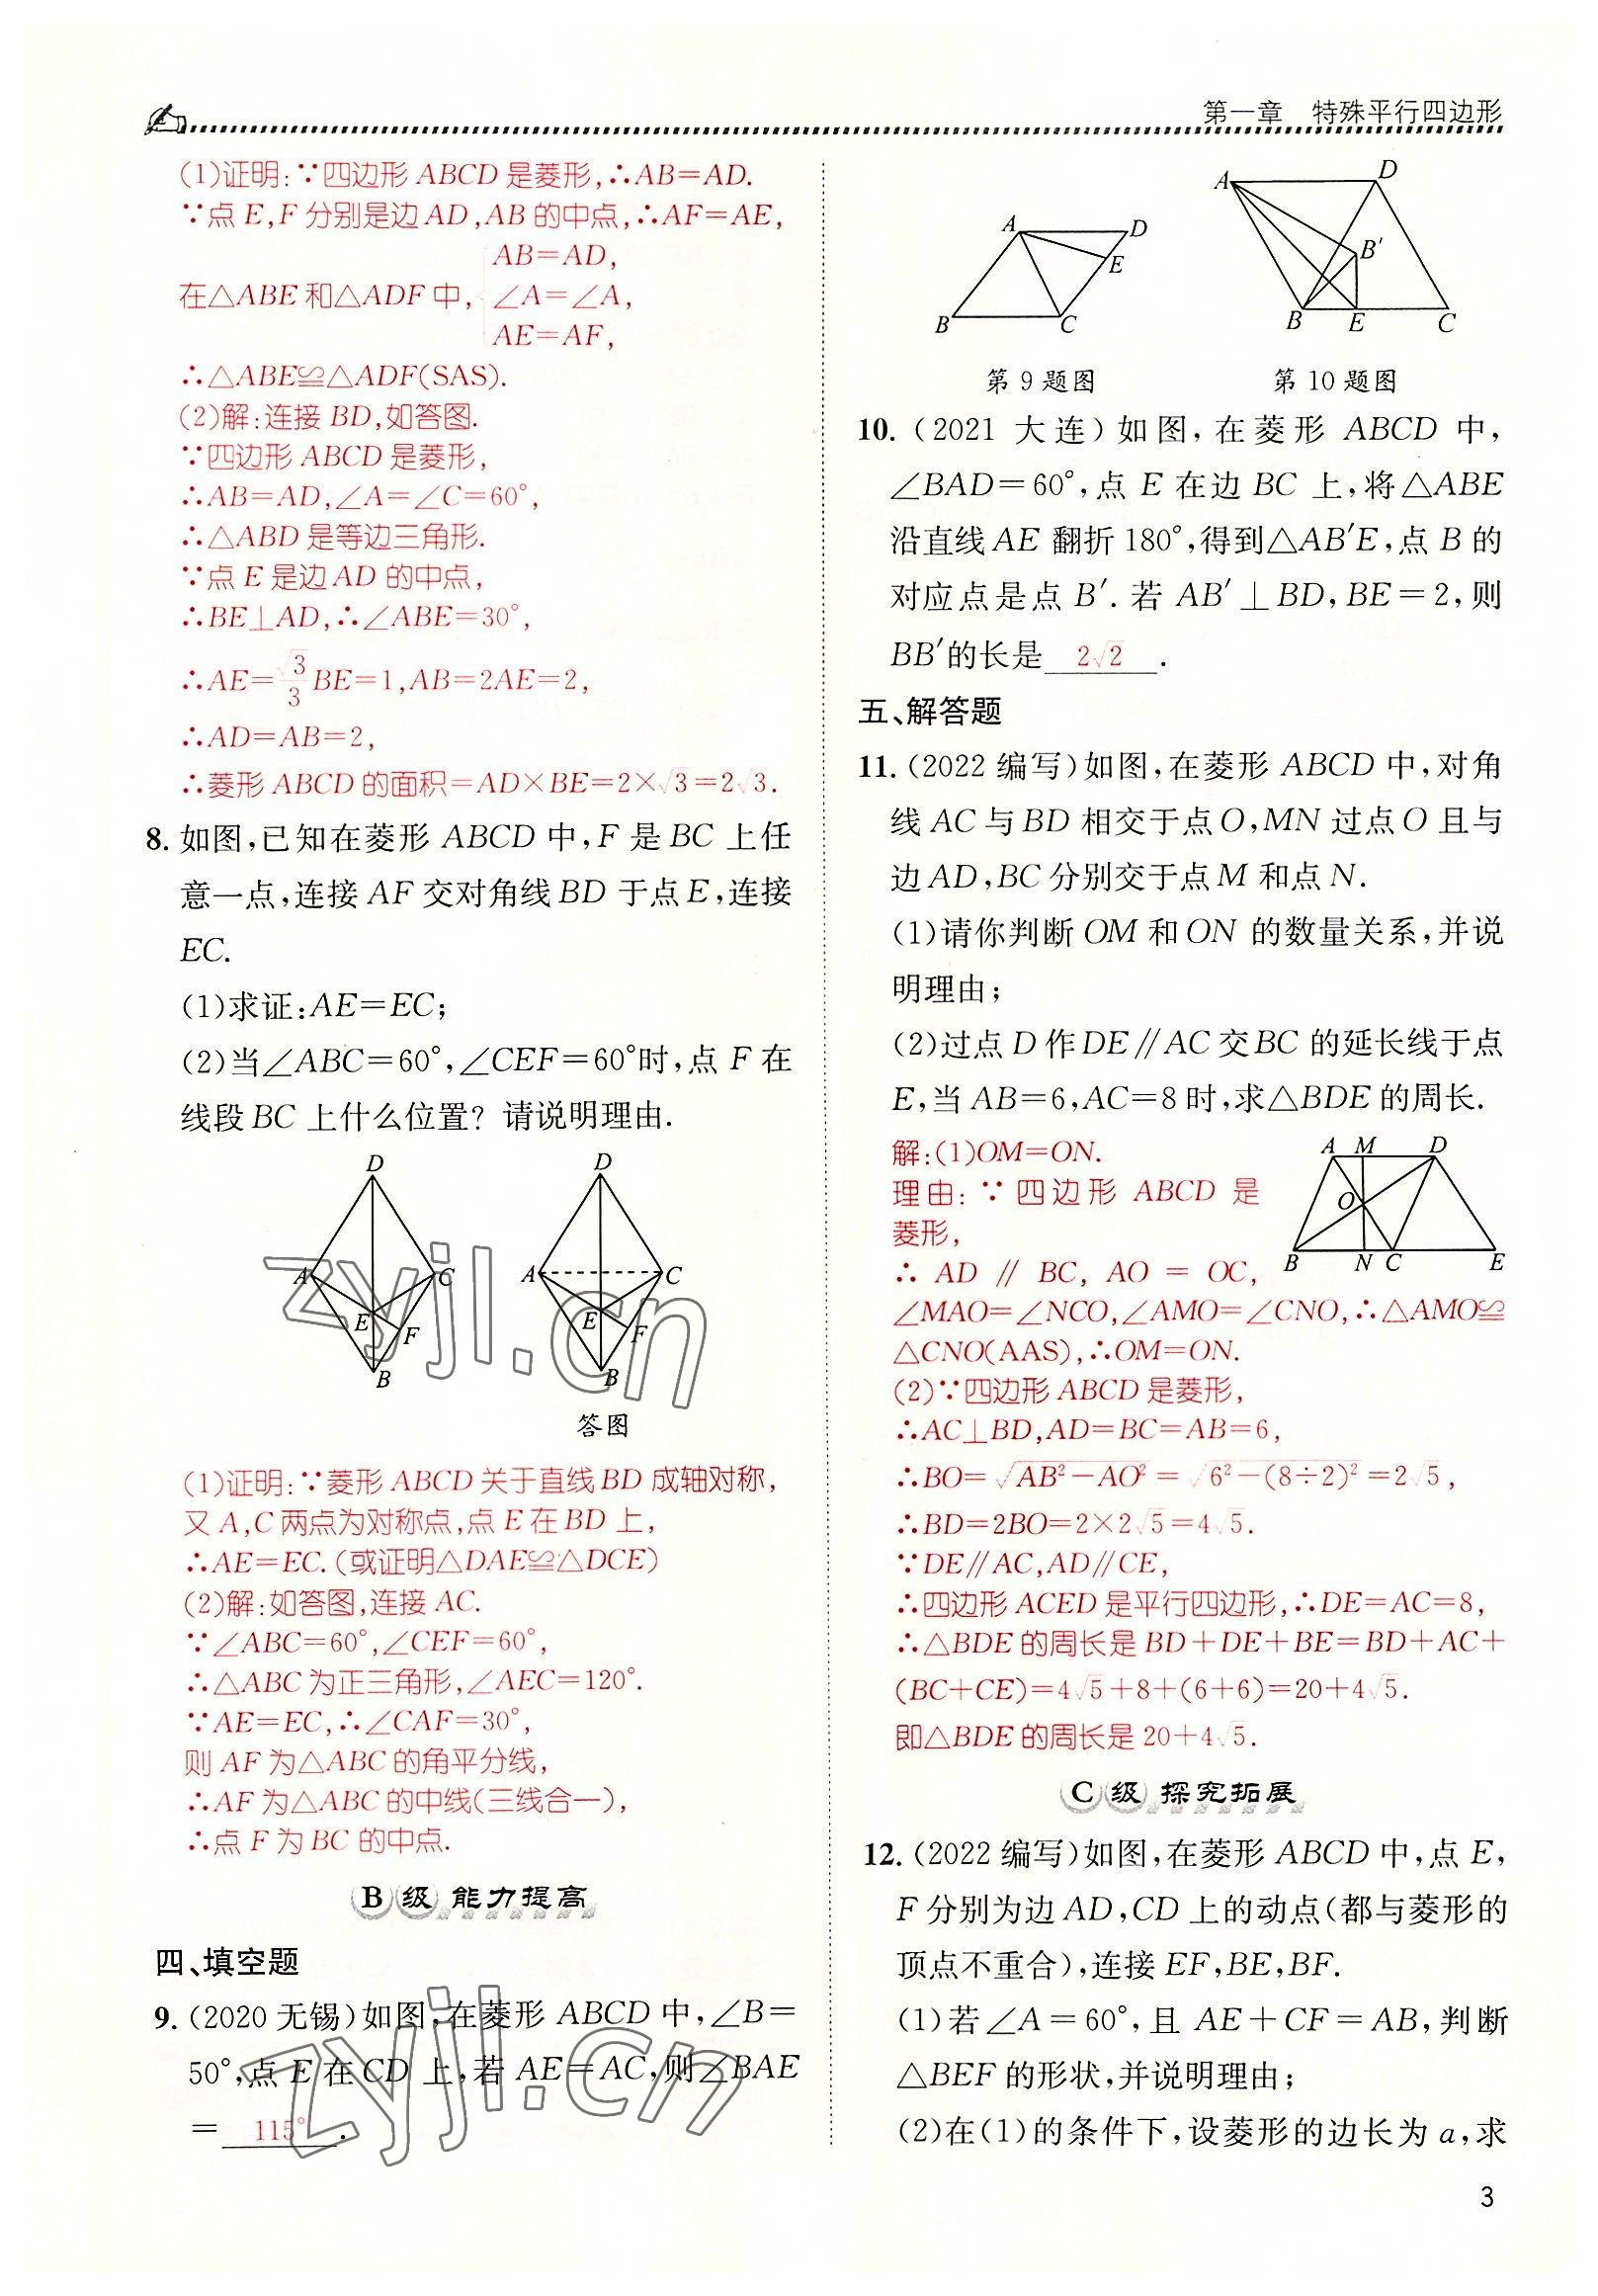 第一章 特殊平行四边形
(1)证明:∵四边形ABCD是菱形,∴AB=AD.
∵点E,F分别是边AD,AB的中点,∴AF=AE,
在△ABE和△ADF中,
AB=AD,
∠A=∠A,
AE=AF,
∴△ABE≌△ADF(SAS).
(2)解:连接BD,如答图.
∵四边形ABCD是菱形,
∴AB=AD,∠A=∠C=60°,
∴△ABD是等边三角形.
∵点E是边AD的中点,
∴BE⊥AD,∴∠ABE=30°,
∴AE=√3/3BE=1,AB=2AE=2,
∴AD=AB=2,
∴菱形ABCD的面积=AD×BE=2×√3=2√3.
8.如图,已知在菱形ABCD中,F是BC上任
意一点,连接AF交对角线BD于点E,连接
EC.
(1)求证:AE=EC;
(2)当∠ABC=60°,∠CEF=60°时,点F在
线段BC上什么位置?请说明理由.
D
A
C
E
F
B
D
A
C
E
F
B
答图
(1)证明:∵菱形ABCD关于直线BD成轴对称,
又A,C两点为对称点,点E在BD上,
∴AE=EC.(或证明△DAE≌△DCE)
(2)解:如答图,连接AC.
∵∠ABC=60°,∠CEF=60°,
∴△ABC为正三角形,∠AEC=120°.
∵AE=EC,∴∠CAF=30°,
则AF为△ABC的角平分线,
∴AF为△ABC的中线(三线合一),
∴点F为BC的中点.
B级 能力提高
四、填空题
9.(2020无锡)如图,在菱形ABCD中,∠B=
50°,点E在CD上,若AE=AC,则∠BAE
= 115°.
A
D
E
B
C
第9题图
A
D
B′
B
E
C
第10题图
10.(2021大连)如图,在菱形ABCD中,
∠BAD=60°,点E在边BC上,将△ABE
沿直线AE翻折180°,得到△AB′E,点B的
对应点是点B′.若AB′⊥BD,BE=2,则
BB′的长是 2√2 .
五、解答题
11.(2022编写)如图,在菱形ABCD中,对角
线AC与BD相交于点O,MN过点O且与
边AD,BC分别交于点M和点N.
(1)请你判断OM和ON的数量关系,并说
明理由;
(2)过点D作DE∥AC交BC的延长线于点
E,当AB=6,AC=8时,求△BDE的周长.
解:(1)OM=ON.
理由:∵四边形ABCD是
菱形,
∴AD∥BC,AO=OC,
A M D
O
B N C E
∠MAO=∠NCO,∠AMO=∠CNO,∴△AMO≌
△CNO(AAS),∴OM=ON.
(2)∵四边形ABCD是菱形,
∴AC⊥BD,AD=BC=AB=6,
∴BO=√(AB²-AO²)=√(6²-(8÷2)²)=2√5,
∴BD=2BO=2×2√5=4√5.
∵DE∥AC,AD∥CE,
∴四边形ACED是平行四边形,∴DE=AC=8,
∴△BDE的周长是BD+DE+BE=BD+AC+
(BC+CE)=4√5+8+(6+6)=20+4√5.
即△BDE的周长是20+4√5.
C级 探究拓展
12.(2022编写)如图,在菱形ABCD中,点E,
F分别为边AD,CD上的动点(都与菱形的
顶点不重合),连接EF,BE,BF.
(1)若∠A=60°,且AE+CF=AB,判断
△BEF的形状,并说明理由;
(2)在(1)的条件下,设菱形的边长为a,求
3
zyjl.cn
zyjl.cn